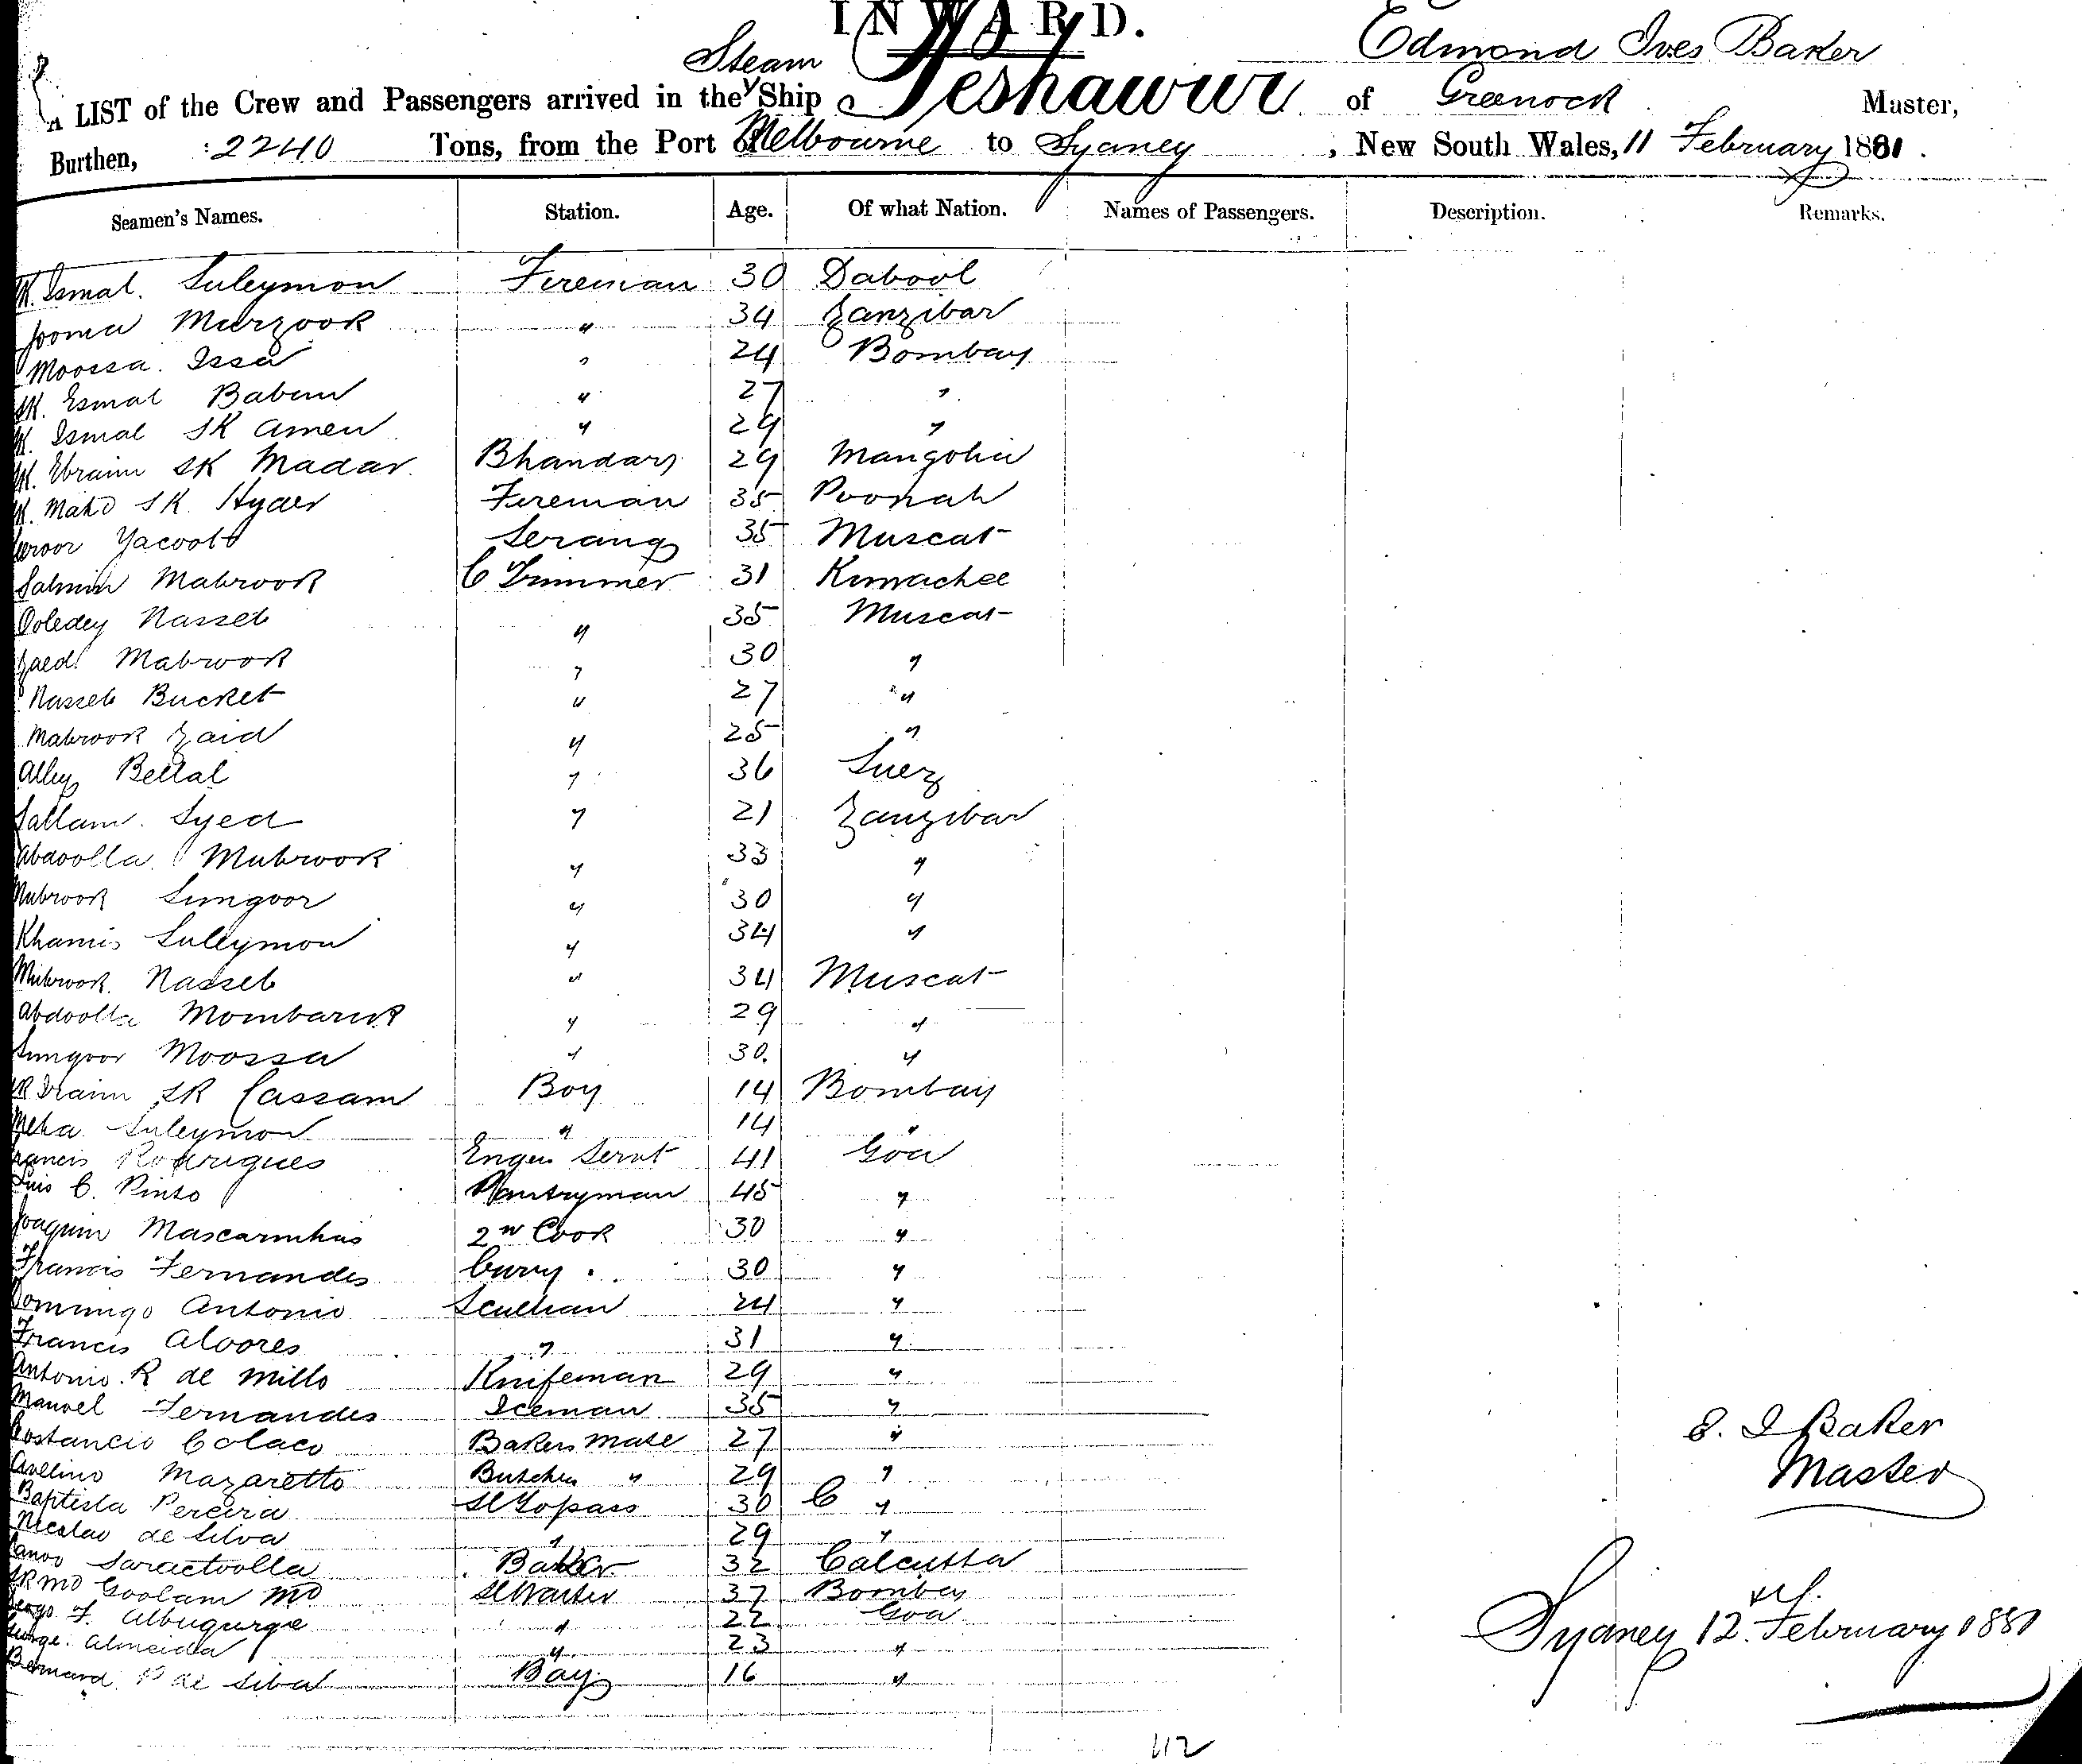 INWARD.
A LIST of the Crew and Passengers arrived in the Steam Ship Peshawur of Greenock Edmond Ives Baker Master,
Burthen, 2240 Tons, from the Port of Melbourne to Sydney, New South Wales, 11 February 1881.
Seamen's Names. Station. Age. Of what Nation. Names of Passengers. Description. Remarks.
SK. Ismal. Suleymon Fireman 30 Dabool
Jooma Murzook " 34 Zanzibar
Moossa. Issa " 24 Bombay
SK. Esmal Babun " 27 "
SK. Ismal SK Amen " 29 "
SK. Ebraim SK Madar Bhandary 29
SK. Mahd SK. Hyder Fireman 35 Poonah
Yacoob Serang 35 Muscat
Salmin Mabrook C Trimmer 31 Kurrachee
Ooledey Nasseb " 35 Muscat
Zaed Mabrook " 30 "
Nasseb Bucket " 27 "
Mabrook Zaid " 25 "
Ally Bellal " 36 Suez
Sallam. Syed " 21 Zanzibar
Abdoolla Mubrook " 33 "
Mubrook Sungoor " 30 "
Khamis Suleymon " 34 "
Mubrook Nasseb " 34 Muscat
Abdoolla Mombaruk " 29 "
Sungoor Moossa " 30. "
SK Ibraim SK Cassam Boy 14 Bombay
Suleymon " 14 "
Francis Rodrigues Engrs Servt 41 Goa
Luis C. Pinto Pantryman 45 "
Joaquim Mascarinhas 2nd Cook 30 "
Francis Fernandes Curry " 30 "
Domingo Antonio Scullion 24 "
Francis Alvores " 31 "
Antonio. R de Mello Knifeman 29 "
Manoel Fernandes Iceman 35 "
Costancio Colaco Bakers Mate 27 "
Avelino Mazaretto Butchers " 29 "
Baptista Pereira SlTopass 30 "
Nicolao de Silva " 29 "
Saractoolla Baker 32 Calcutta
SK Md Goolam Md SlWaiter 37 Bombay
F. Albuqurqe " 22 Goa
George. Almeida " 23 "
Bernard P de Silva Boy 16 "
E. I Baker
Master
Sydney 12. February 1881
42